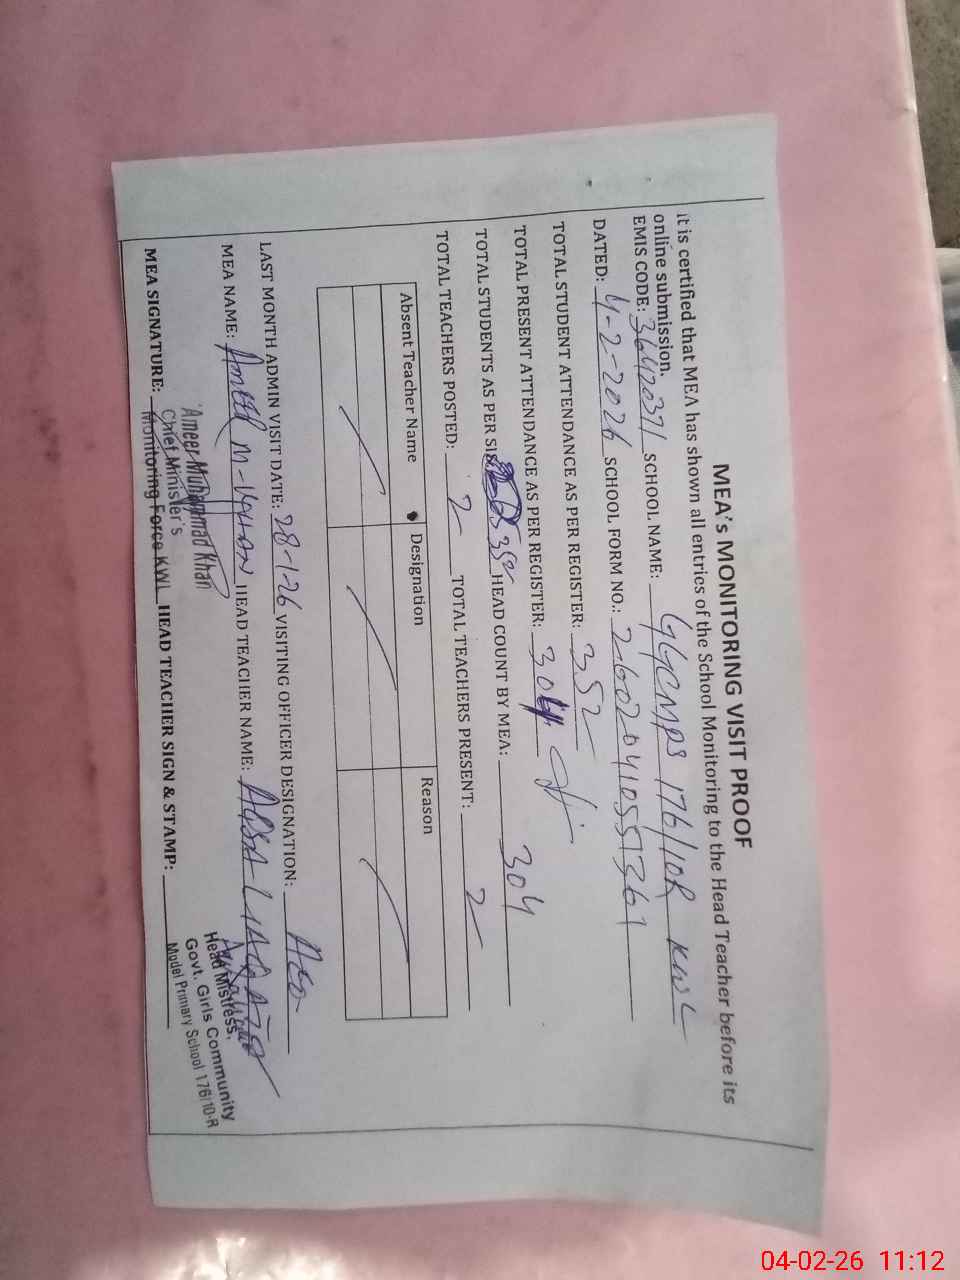 MEA's MONITORING VISIT PROOF
It is certified that MEA has shown all entries of the School Monitoring to the Head Teacher before its
online submission.
EMIS CODE: 36420371 SCHOOL NAME: GGCMPS 176/10R KWL
DATED: 4-2-2026 SCHOOL FORM NO.: 26020410551361
TOTAL STUDENT ATTENDANCE AS PER REGISTER: 352
TOTAL PRESENT ATTENDANCE AS PER REGISTER: 304
TOTAL STUDENTS AS PER SIS 352 HEAD COUNT BY MEA: 304
TOTAL TEACHERS POSTED: 2 TOTAL TEACHERS PRESENT: 2
Absent Teacher Name Designation Reason
LAST MONTH ADMIN VISIT DATE: 28-1-26 VISITING OFFICER DESIGNATION: AEO
MEA NAME: AMEER M-KHAN HEAD TEACHER NAME: AQSA LIAQAT
Ameer Muhammad Khan
Chief Minister's
Monitoring Force KWL
MEA SIGNATURE: HEAD TEACHER SIGN & STAMP:
Head Mistress,
Govt. Girls Community
Model Primary School 176/10-R
04-02-26 11:12